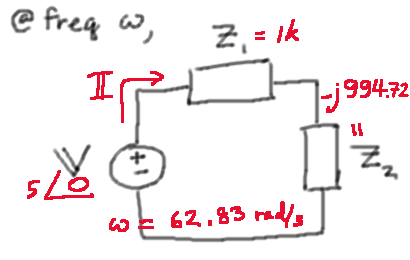 @ freq ω,
Z₁ = 1k
I
-j994.72
"
Z₂
V
+
-
5∠0
ω = 62.83 rad/s